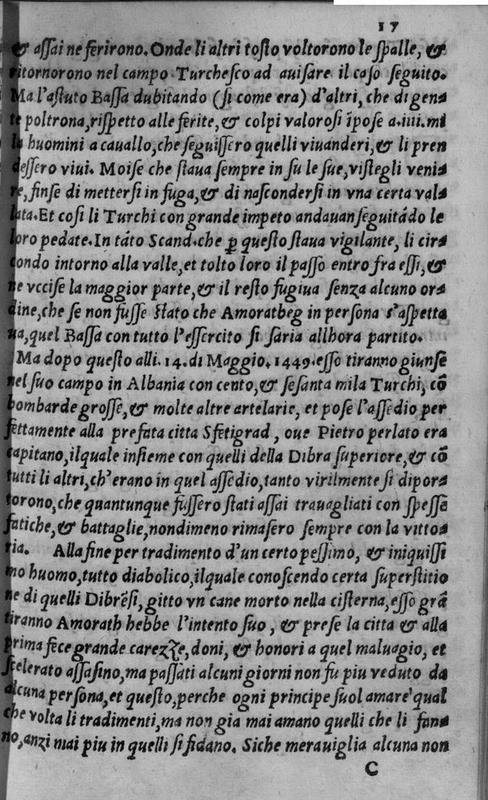 17
& assai ne ferirono. Onde li altri tosto voltorono le spalle, &
ritornorono nel campo Turchesco ad auisare il caso seguito.
Ma l'astuto Bassa dubitando (si come era) d'altri, che di gena
te poltrona, rispetto alle ferite, & colpi valorosi ĩpose a.iiii.mi
la huomini a cauallo, che seguissero quelli viuanderi, & li pren
dessero viui. Moise che staua sempre in su le sue, vistegli venia
re, finse di mettersi in fuga, & di nascondersi in vna certa vala
lata. Et cosi li Turchi con grande impeto andauan seguitádo le
loro pedate. In táto Scand. che ꝑ questo staua vigilante, li cira
condo intorno alla valle, et tolto loro il passo entro fra essi, &
ne vccise la maggior parte, & il resto fugiua senza alcuno ora
dine, che se non fusse stato che Amoratbeg in persona s'aspetta
ua, quel Bassa con tutto l'essercito si saria allhora partito.
Ma dopo questo alli. 14. di Maggio. 1449. esso tiranno giunse
nel suo campo in Albania con cento, & sesanta mila Turchi, cõ
bombarde grosse, & molte altre artelarie, et pose l'assedio per
fettamente alla prefata citta Sfetigrad, oue Pietro perlato era
capitano, ilquale insieme con quelli della Dibra superiore, & cõ
tutti li altri, ch'erano in quel assedio, tanto virilmente si dipora
torono, che quantunque fussero stati assai trauagliati con spesse
fatiche, & battaglie, nondimeno rimasero sempre con la vittoa
ria. Alla fine per tradimento d'un certo pessimo, & iniquissi
mo huomo, tutto diabolico, ilquale conoscendo certa superstitio
ne di quelli Dibrẽsi, gitto vn cane morto nella cisterna, esso grã
tiranno Amorath hebbe l'intento suo, & prese la citta & alla
prima fece grande carezze, doni, & honori a quel maluagio, et
scelerato assasino, ma passati alcuni giorni non fu piu veduto da
alcuna persona, et questo, perche ogni principe suol amare qual
che volta li tradimenti, ma non gia mai amano quelli che li fana
no, anzi mai piu in quelli si fidano. Siche merauiglia alcuna non
C